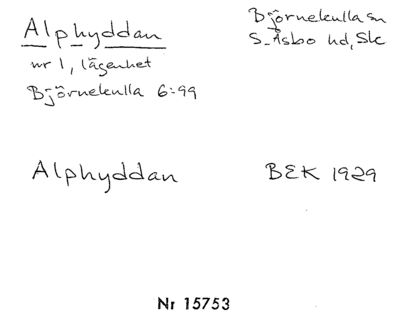 Alphyddan
nr 1, lägenhet
Björnekulla 6:99
Björnekulla sn
S. Åsbo hd, Sk
Alphyddan
BEK 1929
Nr 15753